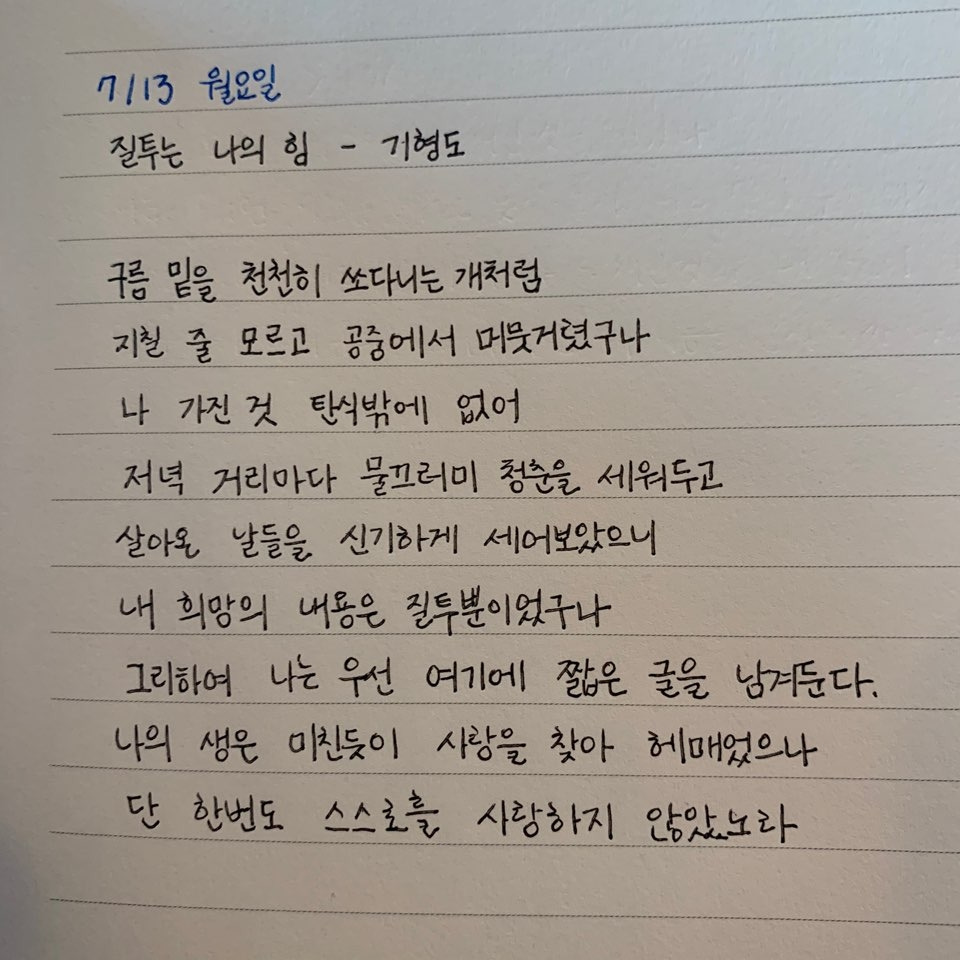 7/13 월요일
질투는 나의 힘 - 기형도
구름 밑을 천천히 쏘다니는 개처럼
지칠 줄 모르고 공중에서 머뭇거렸구나
나 가진 것 탄식밖에 없어
저녁 거리마다 물끄러미 청춘을 세워두고
살아온 날들을 신기하게 세어보았으니
내 희망의 내용은 질투뿐이었구나
그리하여 나는 우선 여기에 짧은 글을 남겨둔다.
나의 생은 미친듯이 사랑을 찾아 헤매었으나
단 한번도 스스로를 사랑하지 않았노라